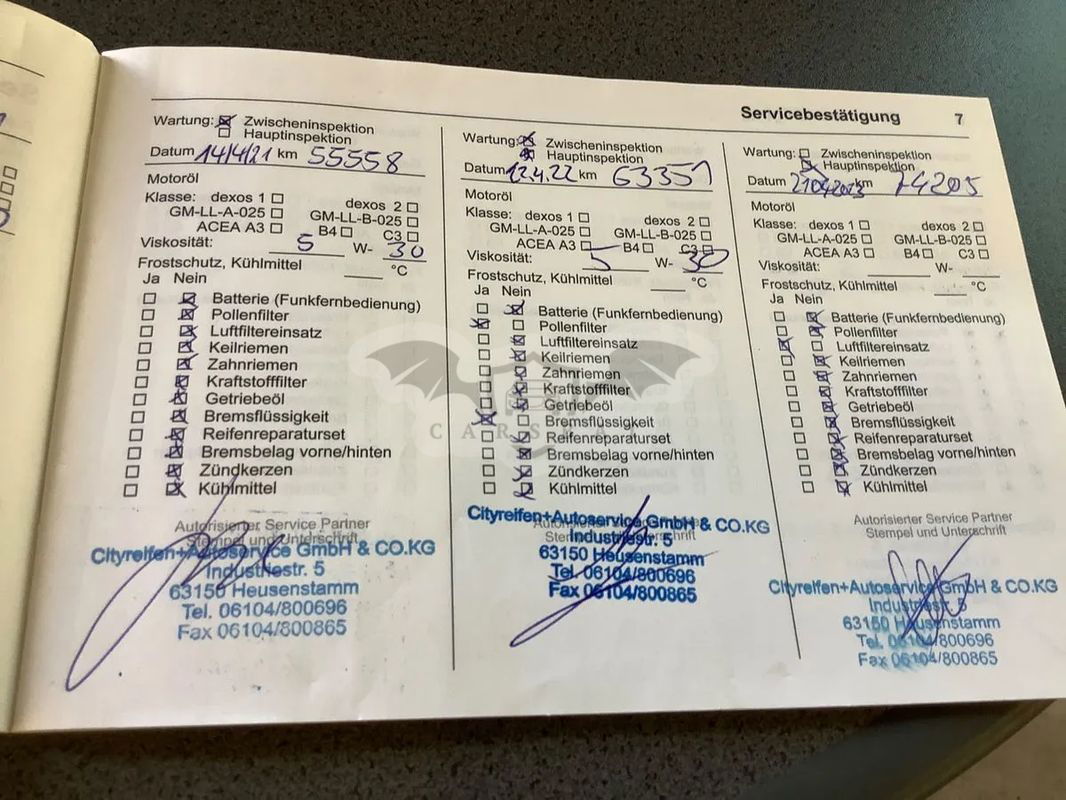 Servicebestätigung 7
Wartung: ☒ Zwischeninspektion
☐ Hauptinspektion
Datum 14/4/21 km 55558
Motoröl
Klasse: dexos 1 ☐ dexos 2 ☐
GM-LL-A-025 ☐ GM-LL-B-025 ☐
ACEA A3 ☐ B4 ☐ C3 ☐
Viskosität: 5 W- 30
Frostschutz, Kühlmittel °C
Ja Nein
☐ ☒ Batterie (Funkfernbedienung)
☐ ☒ Pollenfilter
☐ ☒ Luftfiltereinsatz
☐ ☒ Keilriemen
☐ ☒ Zahnriemen
☐ ☒ Kraftstofffilter
☐ ☒ Getriebeöl
☐ ☒ Bremsflüssigkeit
☐ ☒ Reifenreparaturset
☐ ☒ Bremsbelag vorne/hinten
☐ ☒ Zündkerzen
☐ ☒ Kühlmittel
Autorisierter Service Partner
Stempel und Unterschrift
Cityreifen+Autoservice GmbH & CO.KG
Industriestr. 5
63150 Heusenstamm
Tel. 06104/800696
Fax 06104/800865
Wartung: ☒ Zwischeninspektion
☒ Hauptinspektion
Datum 12.4.22 km 63351
Motoröl
Klasse: dexos 1 ☐ dexos 2 ☐
GM-LL-A-025 ☐ GM-LL-B-025 ☐
ACEA A3 ☐ B4 ☐ C3 ☐
Viskosität: 5 W- 30
Frostschutz, Kühlmittel °C
Ja Nein
☐ ☒ Batterie (Funkfernbedienung)
☒ ☐ Pollenfilter
☐ ☒ Luftfiltereinsatz
☐ ☒ Keilriemen
☐ ☒ Zahnriemen
☐ ☒ Kraftstofffilter
☐ ☒ Getriebeöl
☒ ☐ Bremsflüssigkeit
☐ ☒ Reifenreparaturset
☐ ☒ Bremsbelag vorne/hinten
☐ ☒ Zündkerzen
☐ ☒ Kühlmittel
Autorisierter Service Partner
Stempel und Unterschrift
Cityreifen+Autoservice GmbH & CO.KG
Industriestr. 5
63150 Heusenstamm
Tel. 06104/800696
Fax 06104/800865
Wartung: ☐ Zwischeninspektion
☒ Hauptinspektion
Datum km 74205
Motoröl
Klasse: dexos 1 ☐ dexos 2 ☐
GM-LL-A-025 ☐ GM-LL-B-025 ☐
ACEA A3 ☐ B4 ☐ C3 ☐
Viskosität: W-
Frostschutz, Kühlmittel °C
Ja Nein
☐ ☒ Batterie (Funkfernbedienung)
☐ ☒ Pollenfilter
☒ ☐ Luftfiltereinsatz
☐ ☒ Keilriemen
☐ ☒ Zahnriemen
☐ ☒ Kraftstofffilter
☐ ☒ Getriebeöl
☐ ☒ Bremsflüssigkeit
☐ ☒ Reifenreparaturset
☐ ☒ Bremsbelag vorne/hinten
☐ ☒ Zündkerzen
☐ ☒ Kühlmittel
Autorisierter Service Partner
Stempel und Unterschrift
Cityreifen+Autoservice GmbH & CO.KG
Industriestr. 5
63150 Heusenstamm
Tel. 06104/800696
Fax 06104/800865